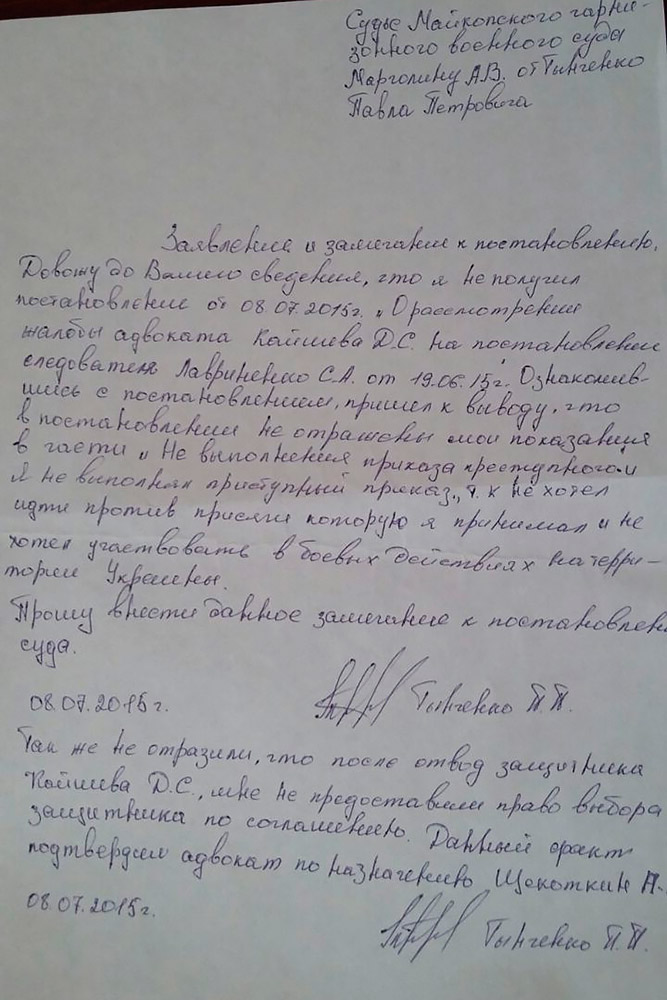 Судье Майкопского гарни-
зонного военного суда
Марголину А.В. от Тынченко
Павла Петровича
Заявление и замечание к постановлению.
Довожу до Вашего сведения, что я не получил
постановление от 08.07.2015г. „О рассмотрении
жалобы адвоката Кайшева Д.С. на постановление
следователя Лавриненко С.А. от 19.06.15г." Ознакомив-
шись с постановлением, пришел к выводу, что
в постановлении не отражены мои показания
в части „Не выполнения приказа преступного" и
Я не выполнял приступный приказ, т.к не хотел
идти против присяги которую я принимал и не
хотел участвовать в боевых действиях на терри-
тории Украины.
Прошу внести данное замечание к постановлен
суда.
08.07.2015г. Тынченко П.П.
Так же не отразили, что после отвод защитника
Кайшева Д.С., мне не предоставили право выбора
защитника по соглашению. Данный факт
подтвердил адвокат по назначению Щекоткин А.
08.07.2015г.
Тынченко П.П.